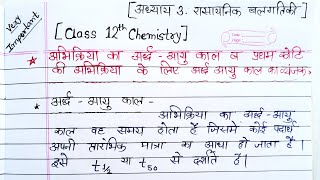 Very Important
[अध्याय 3. रासायनिक बलगतिकी]
[Class 12th Chemistry]
* अभिक्रिया का अर्द्ध-आयु काल व प्रथम कोटि
की अभिक्रिया के लिए अर्द्ध आयु काल का व्यंजक,
* अर्द्ध-आयु काल-
अभिक्रिया का अर्द्ध-आयु
काल वह समय होता है जिसमें कोई पदार्थ
अपनी प्रारंभिक मात्रा का आधा हो जाता है।
इसे t½ या t50 से दर्शाते हैं।